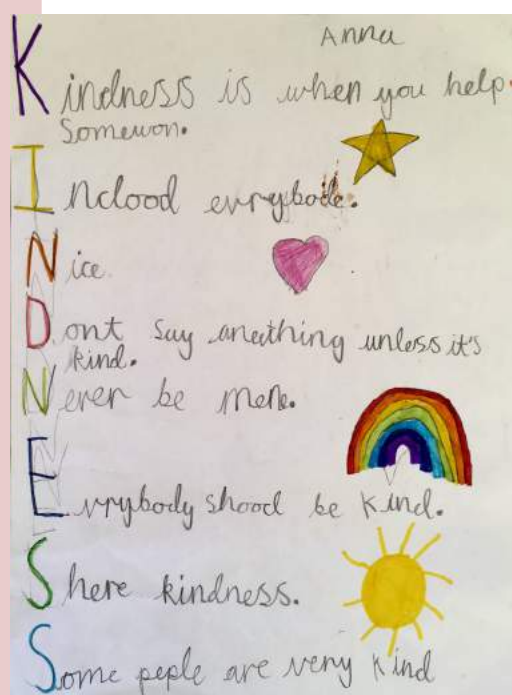 Anna
Kindness is when you help.
Somewon.
Inclood evrybode.
Nice.
Dont say aneithing unless it's
kind.
Never be mene.
Evrybody shood be kind.
Shere kindness.
Some peple are very kind